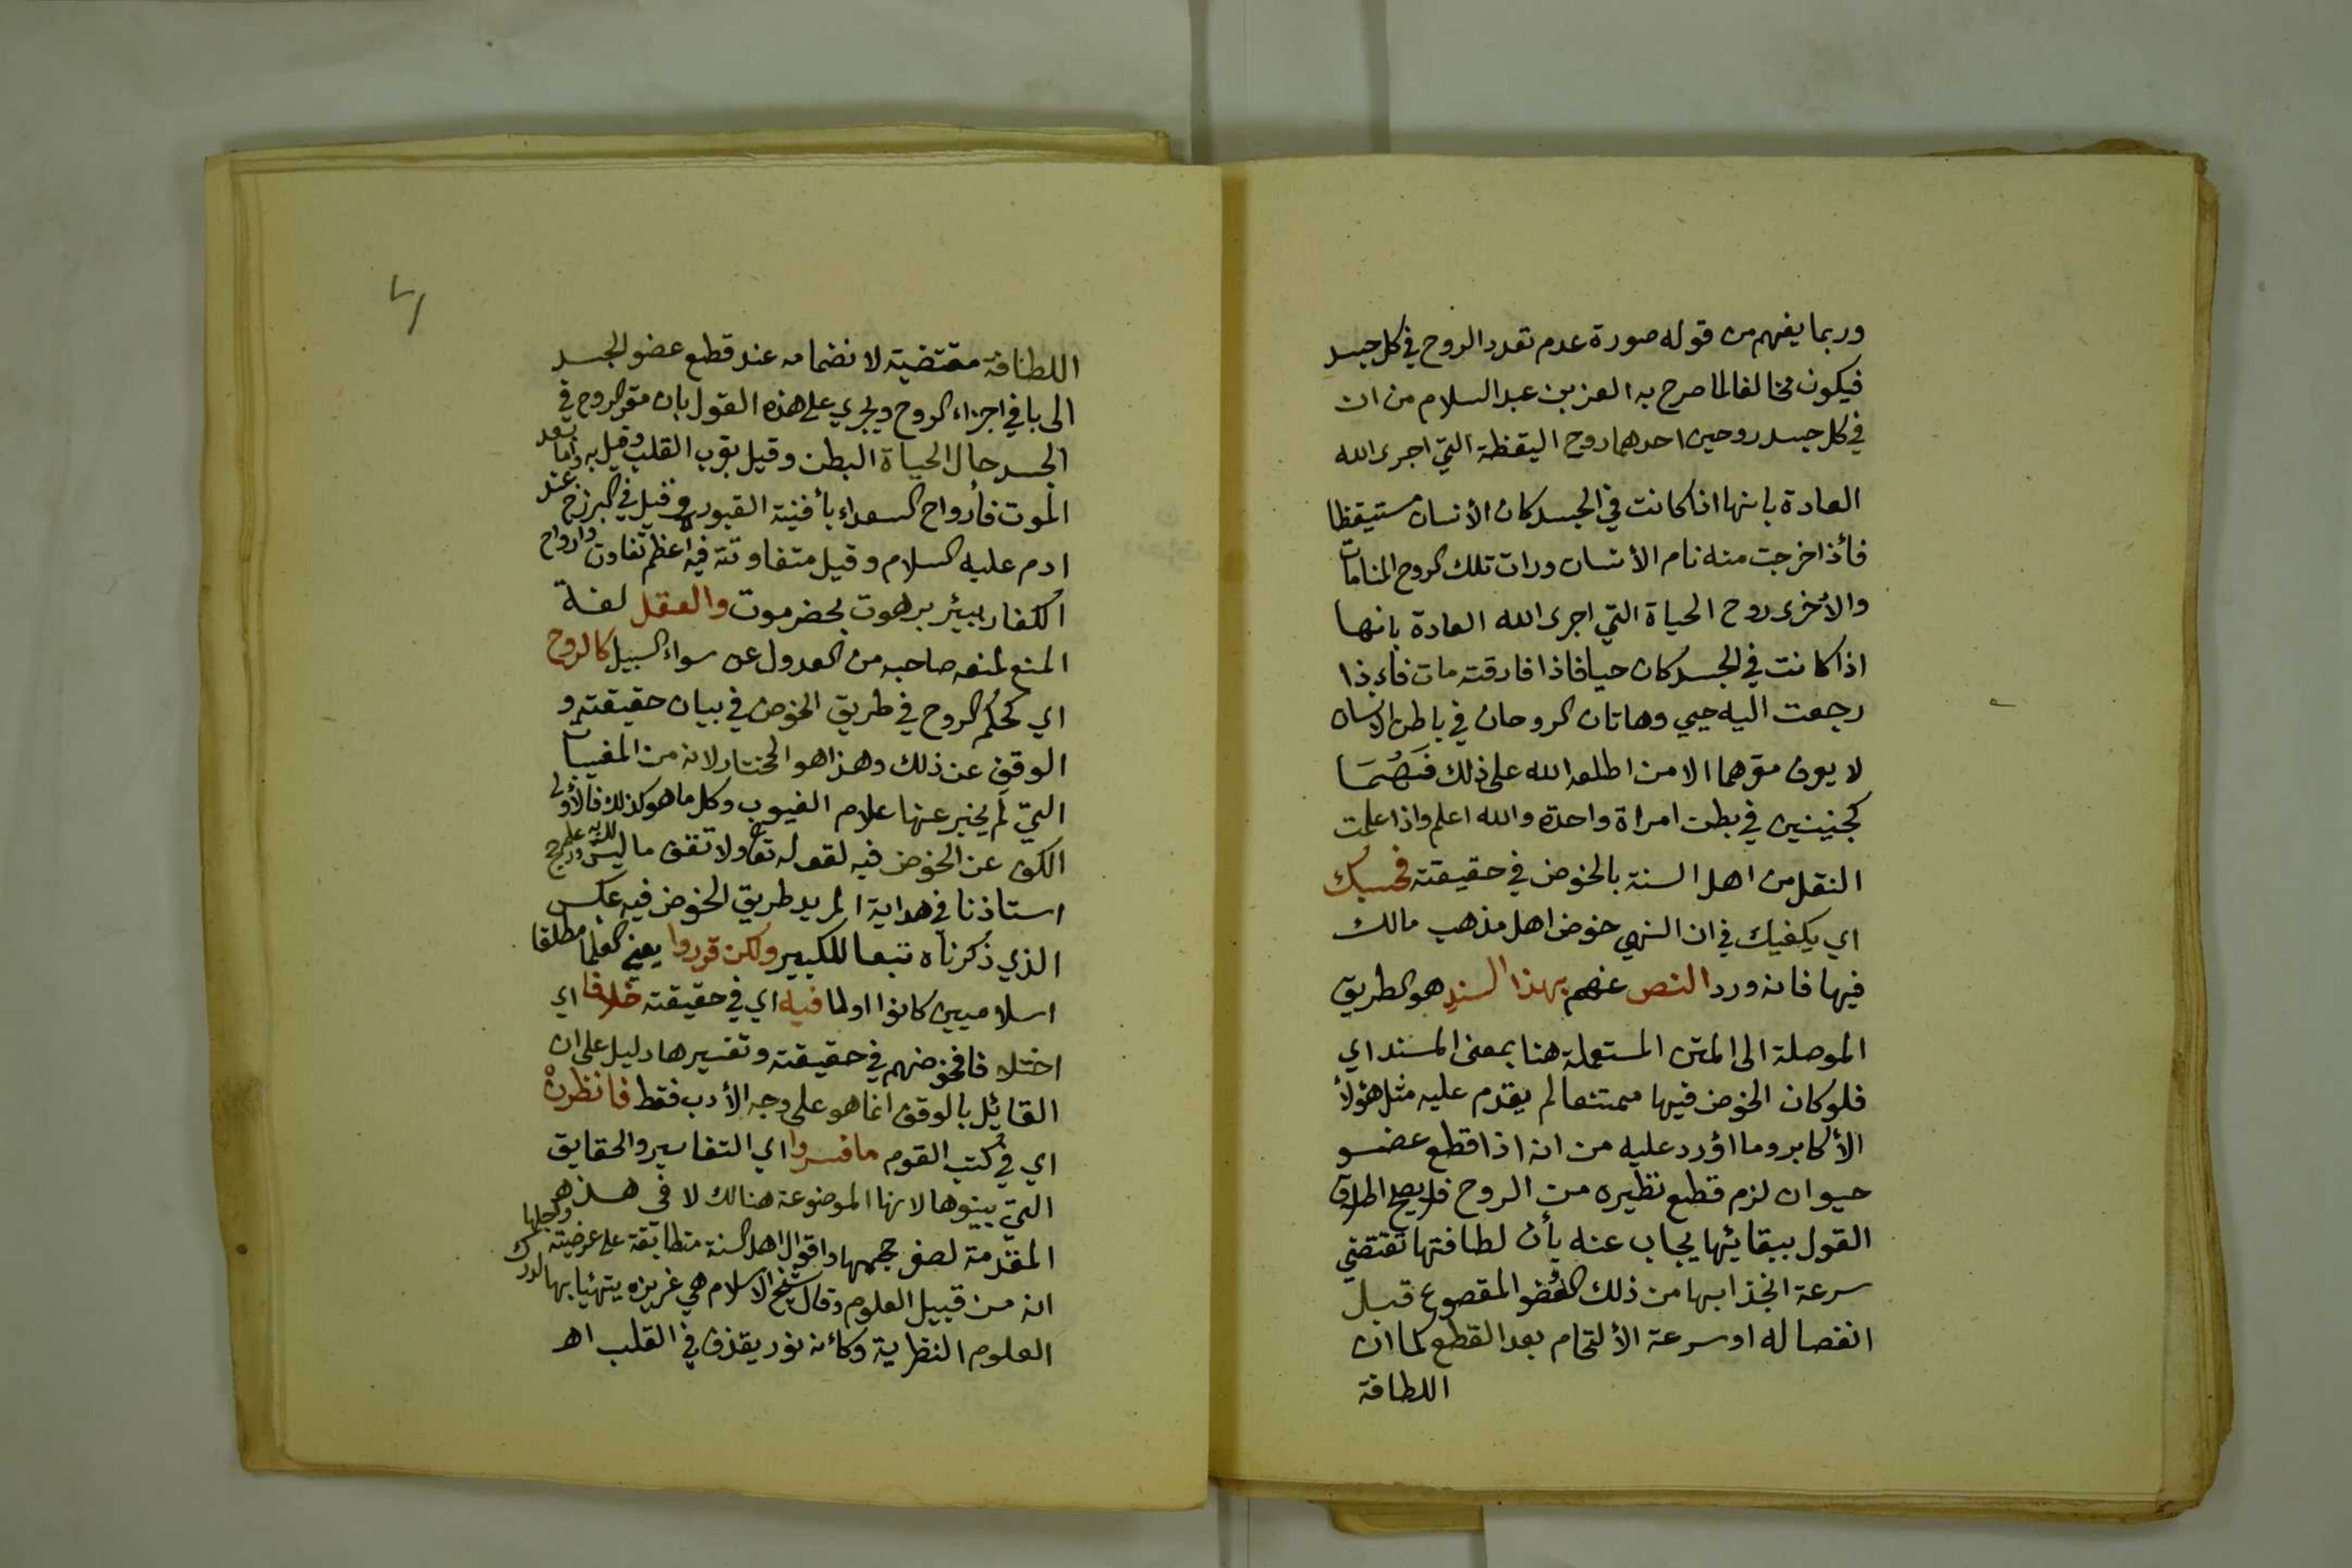 وربما يفهم من قوله صورة عدم تعدد الروح في كل جسد
فيكون مخالفا لما صرح به العز بن عبد السلام من ان
في كل جسد روحين احدهما روح اليقظة التي اجرى الله
العادة بانها اذا كانت في الجسد كان الأنسان مستيقظا
فأذا خرجت منه نام الأنسان ورات تلك الروح المنامات
والأخرى روح الحياة التي اجرى الله العادة بانها
اذا كانت في الجسد كان حيا فاذا فارقته مات فاءذا
رجعت اليه حيي وهاتان الروحان في باطن الانسان
لا يعرف مقرهما الا من اطلعه الله على ذلك فَهُمَا
كجنينين في بطن امراة واحدة والله اعلم واذا علمت
النقل من اهل السنة بالخوض في حقيقته فحسبك
اي يكفيك في ان النهي خوض اهل مذهب مالك
فيها فانه ورد النص عنهم بهذا السند هو الطريق
الموصلة الى المتن المستعملة هنا بمعنى المسند اي
فلو كان الخوض فيها ممتنعا لم يقدم عليه مثل هؤلأ
الأكابر وما اؤرد عليه من انه اذا قطع عضو
حيوان لزم قطع نظيره من الروح فلا يصح اطلاق
القول ببقائها يجاب عنه بأن لطافتها تقتضي
سرعة انجذابها من ذلك العُضو المقصوع قبل
انفصاله او سرعة الألتحام بعد القطع لما ان
اللطافة
اللطافة مقتضية لانضمامه عند قطع عضو الجسد
الى باقي اجزاء الروح ويجري على هذه القول بان مقر الروح في
الجسد حال الحياة البطن وقيل بقرب القلب وقيل به واما بعد
الموت فأرواح السعداء بأفنية القبور وقيل في البرزخ عند
ادم عليه السلام وقيل متفاوتة فيه اعظم تفاوت وارواح
الكفار ببئر برهوت بحضرموت والعقل لغة
المنع لمنعه صاحبه من العدول عن سواء السبيل كالروح
اي كحكم الروح في طريق الخوض في بيان حقيقته و
الوقف عن ذلك وهذا هو المختار لانه من المغيبات
التي لم يخبر عنها علام الغيوب وكل ما هو كذلك فالأولى
الكف عن الخوض فيه لقوله تعالى ولا تقف ما ليس لك به علم ورجح
استاذنا في هداية المريد طريق الخوض فيه عكس
الذي ذكرناه تبعا للكبير ولكن قرروا يعني العلما مطلقا
اسلاميين كانوا اولا فيه اي في حقيقته خلافا اي
اختلافا فخوضهم في حقيقته وتفسيرها دليل على ان
القائيل بالوقف انما هو على وجه الأدب فقط فانظرنْ
اي في كتب القوم ما فسروا اي التفاسير والحقايق
التي بينوها لانها الموضوعة هنالك لا في هذه
المقدمة لصغر حجمها واقوال اهل السنة متطابقة على عرضيته وجلها
انه من قبيل العلوم وقال شيخ الاسلام هي غريزه يتهيا بها لدرك
العلوم النظرية وكأنه نور يقذف في القلب اهـ